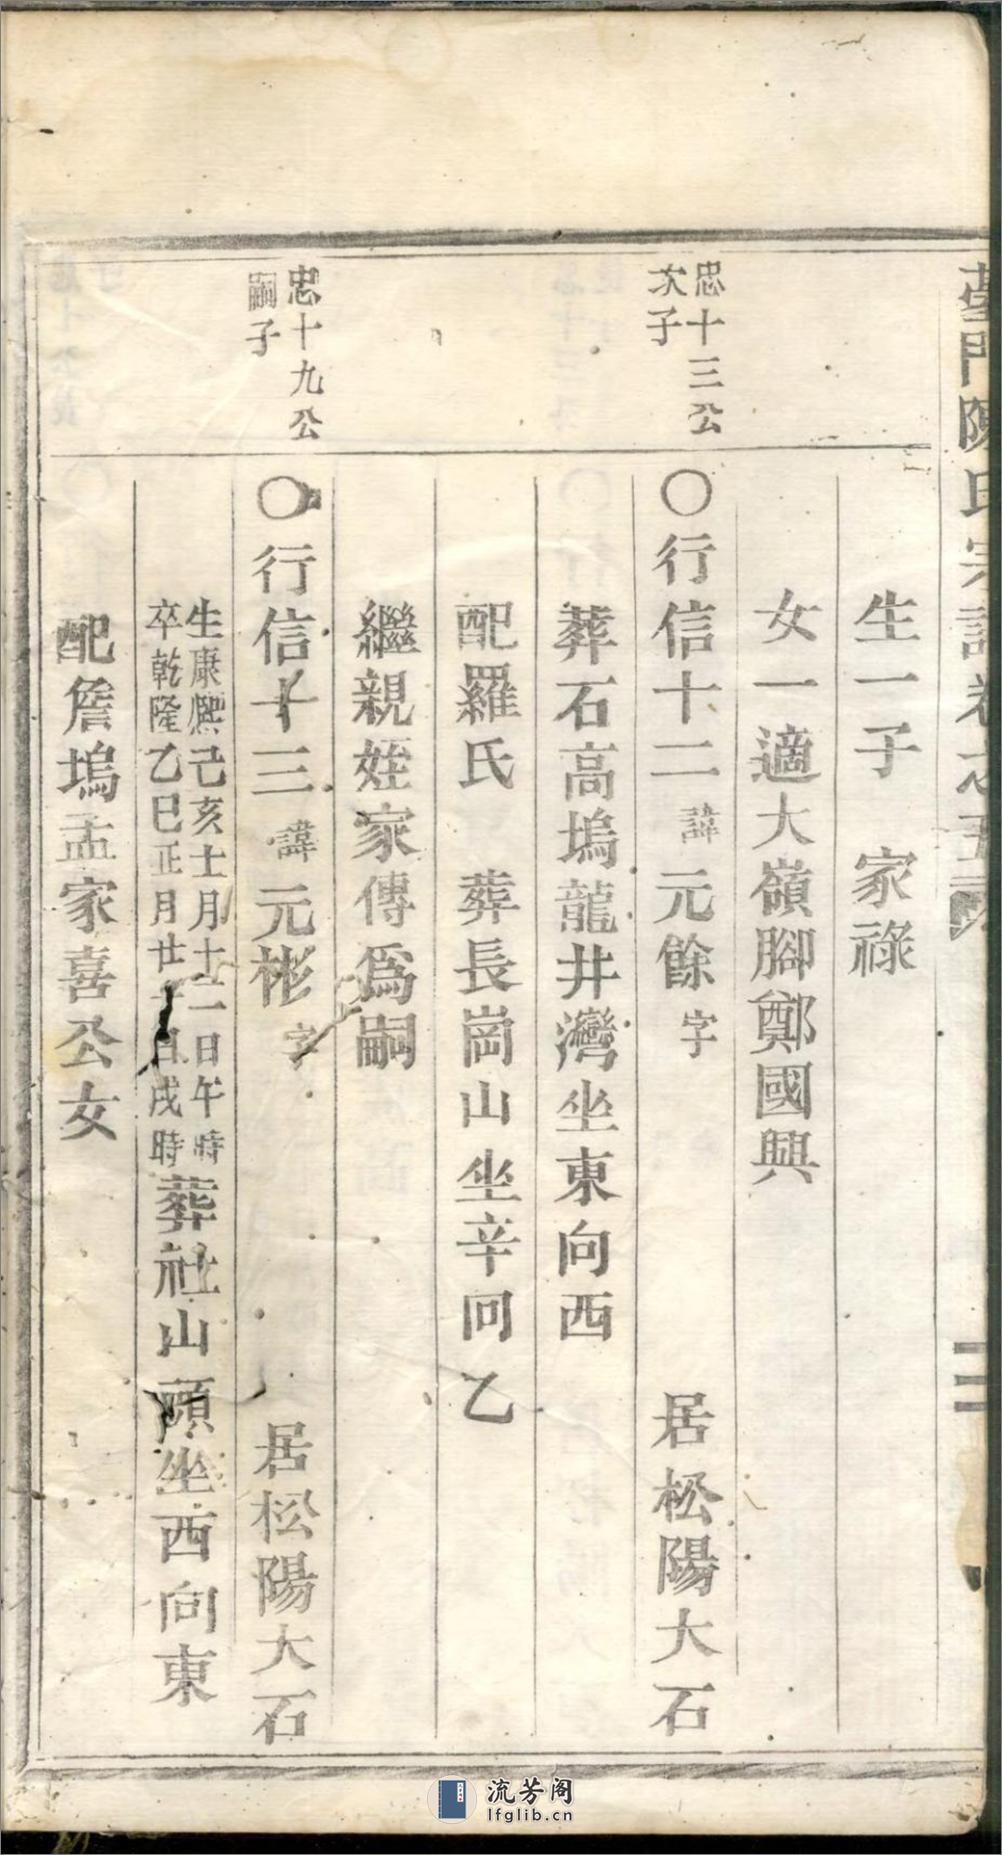 臺門陳氏宗譜卷之五
二
生一子　家祿
女一適大嶺腳鄭國興
忠十三公
次子
〇行信十二諱元餘字　居松陽大石
葬石高塢龍井灣坐東向西
配羅氏　葬長崗山坐辛向乙
繼親姪家傳爲嗣
忠十九公
嗣子
〇行信十三諱元彬字　居松陽大石
生康熙己亥十一月十二日午時
卒乾隆乙巳正月廿日戌時
葬社山頭坐西向東
配詹塢孟家喜公女
流芳阁
lfglib.cn